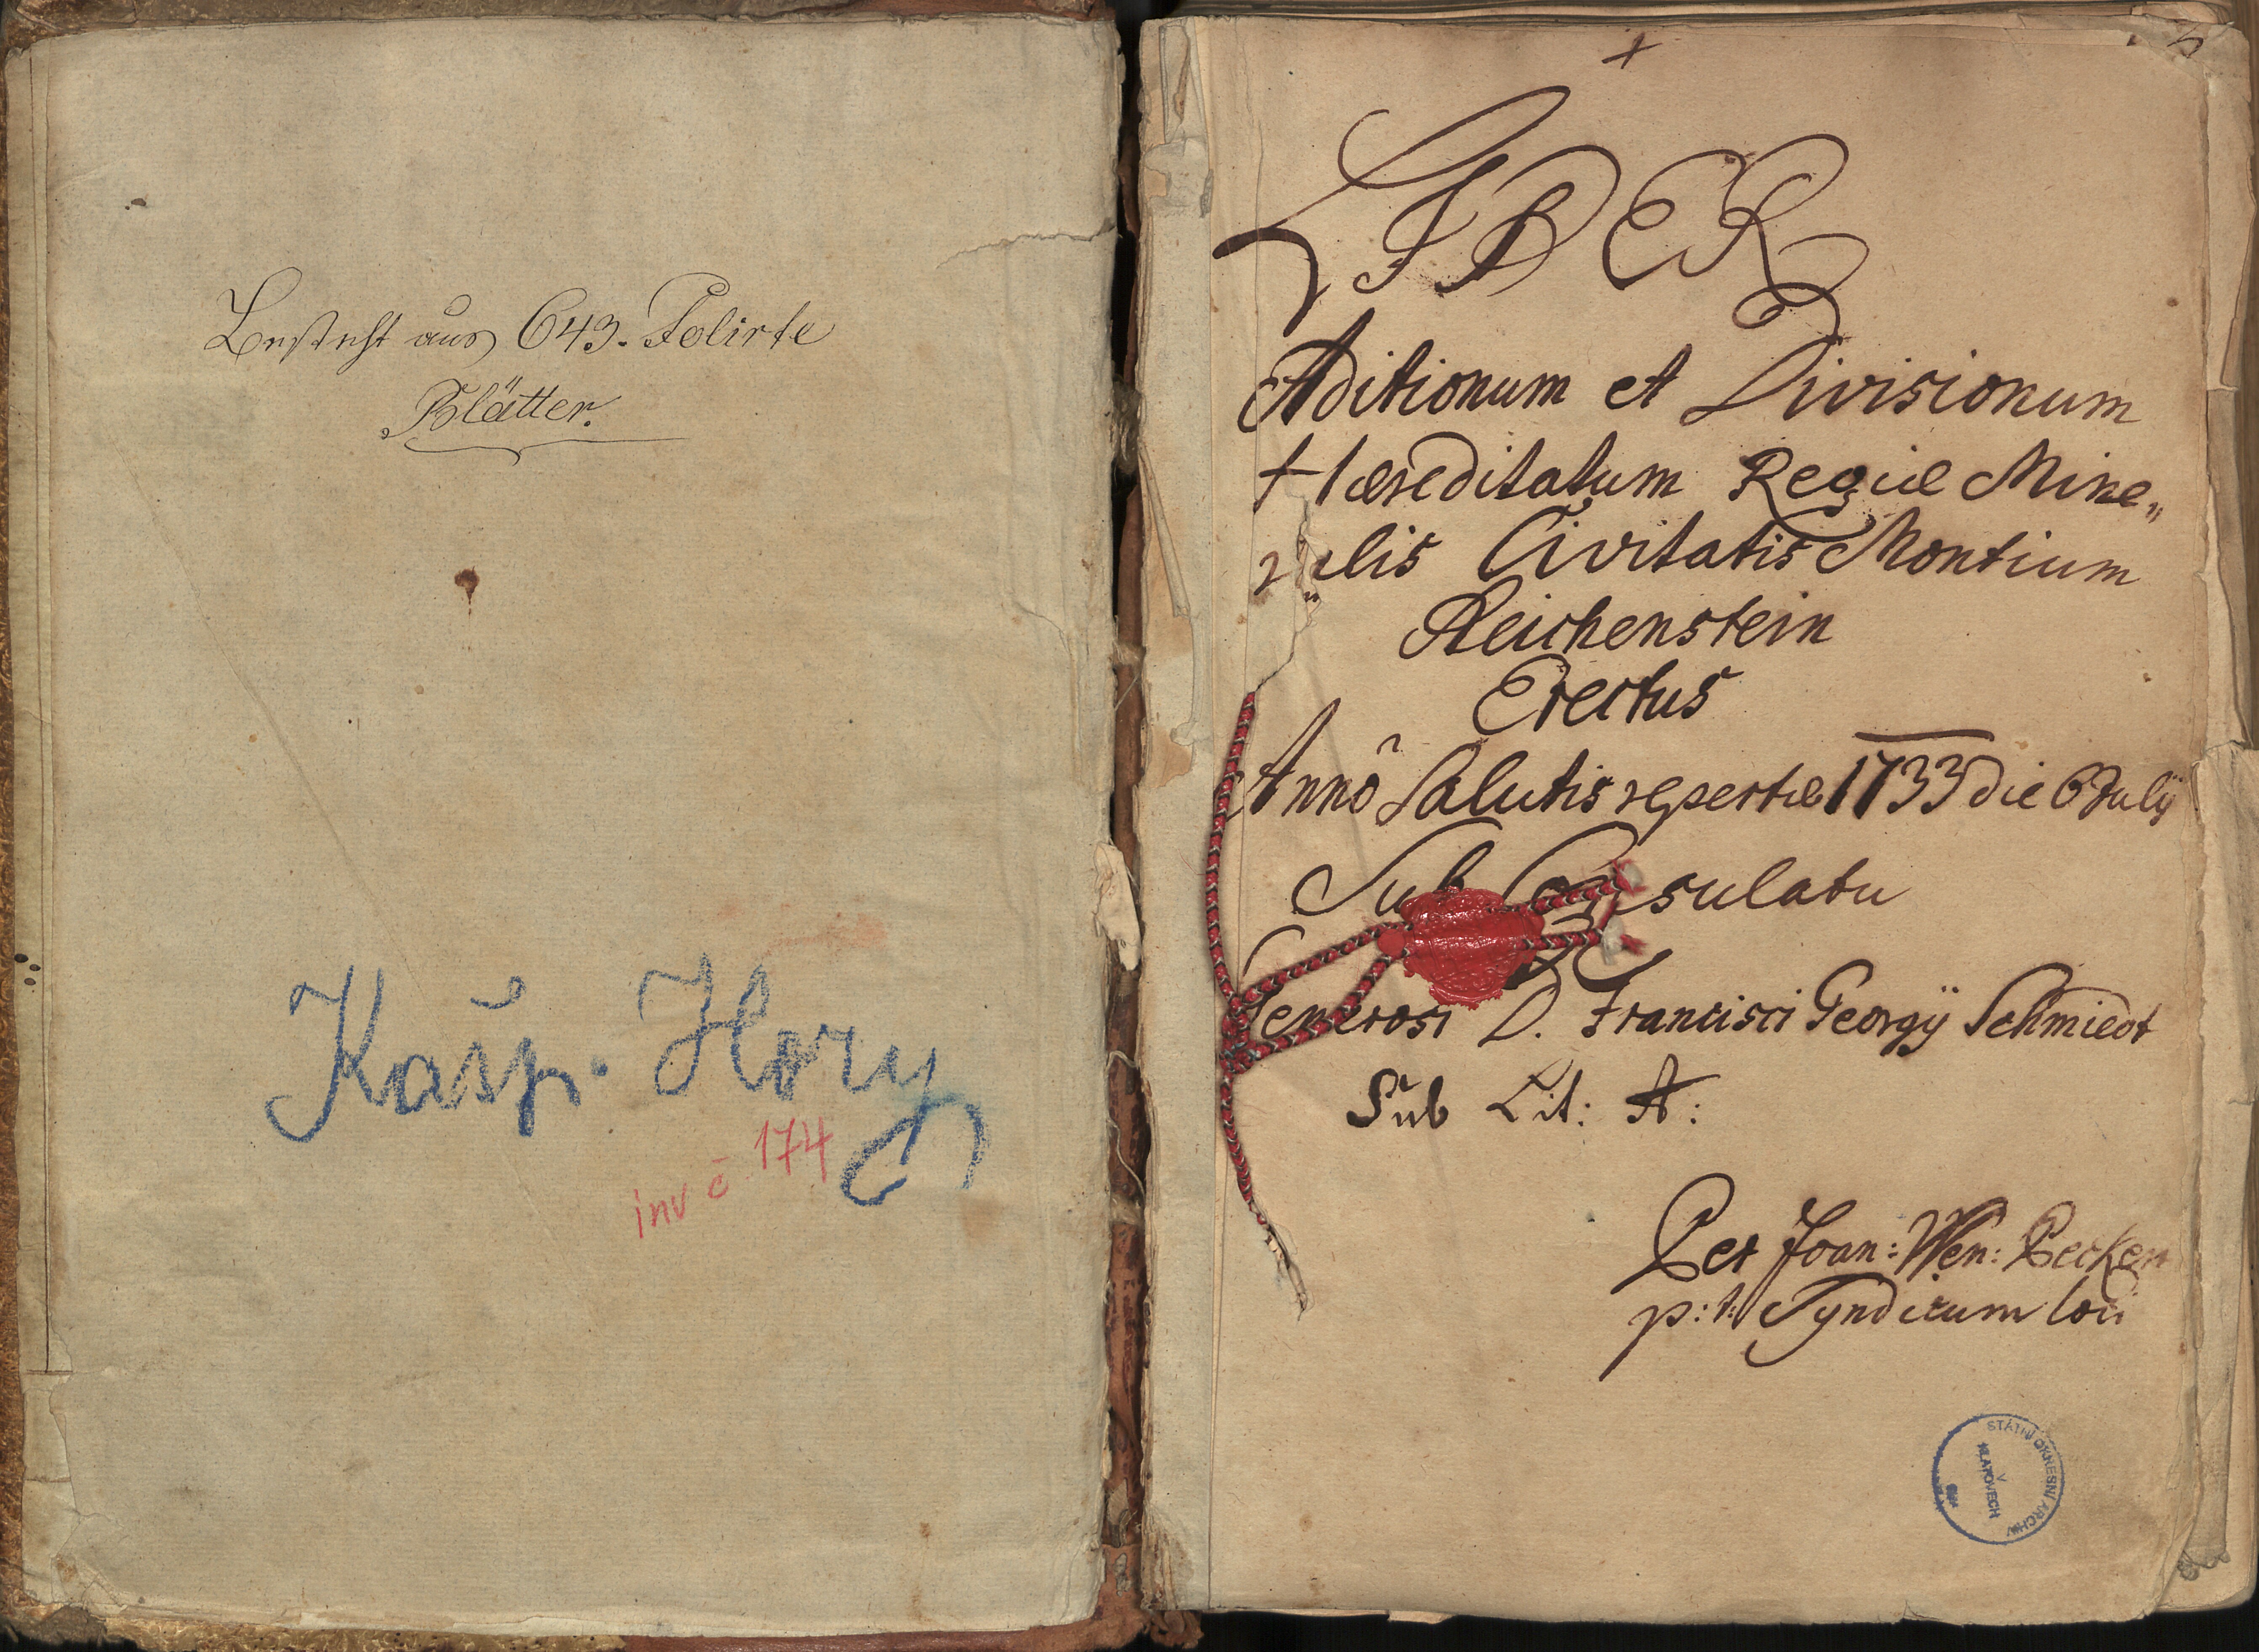 Besteht aus 643. Folirte
Blätter.
Kašp. Hory
inv č 174
LIBER
Aditionum et Divisionum
Hæreditatum Regiæ Mine„
ralis Civitatis Montium
Reichenstein
Erectus
Anno Salutis repertæ 1733 die 6 July
Sub Consulatu
Generosi D. Francisci Georgÿ Schmiedt
Sub Lit: A:
Per Joan: Wen: Pecken
p: t: Syndicum loci
STÁTNÍ OKRESNÍ ARCHIV
V
KLATOVECH